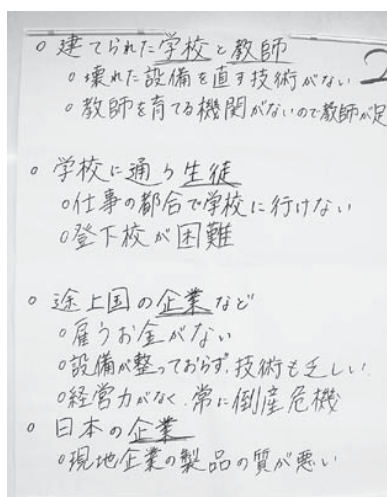 ○ 建てられた学校と教師
○ 壊れた設備を直す技術がない
○ 教師を育てる機関がないので教師が足
2
○ 学校に通う生徒
○仕事の都合で学校に行けない
○登下校が困難
○ 途上国の企業など
○雇うお金がない
○設備が整っておらず、技術も乏しい
○経営力がなく、常に倒産危機
○ 日本の企業
○現地企業の製品の質が悪い